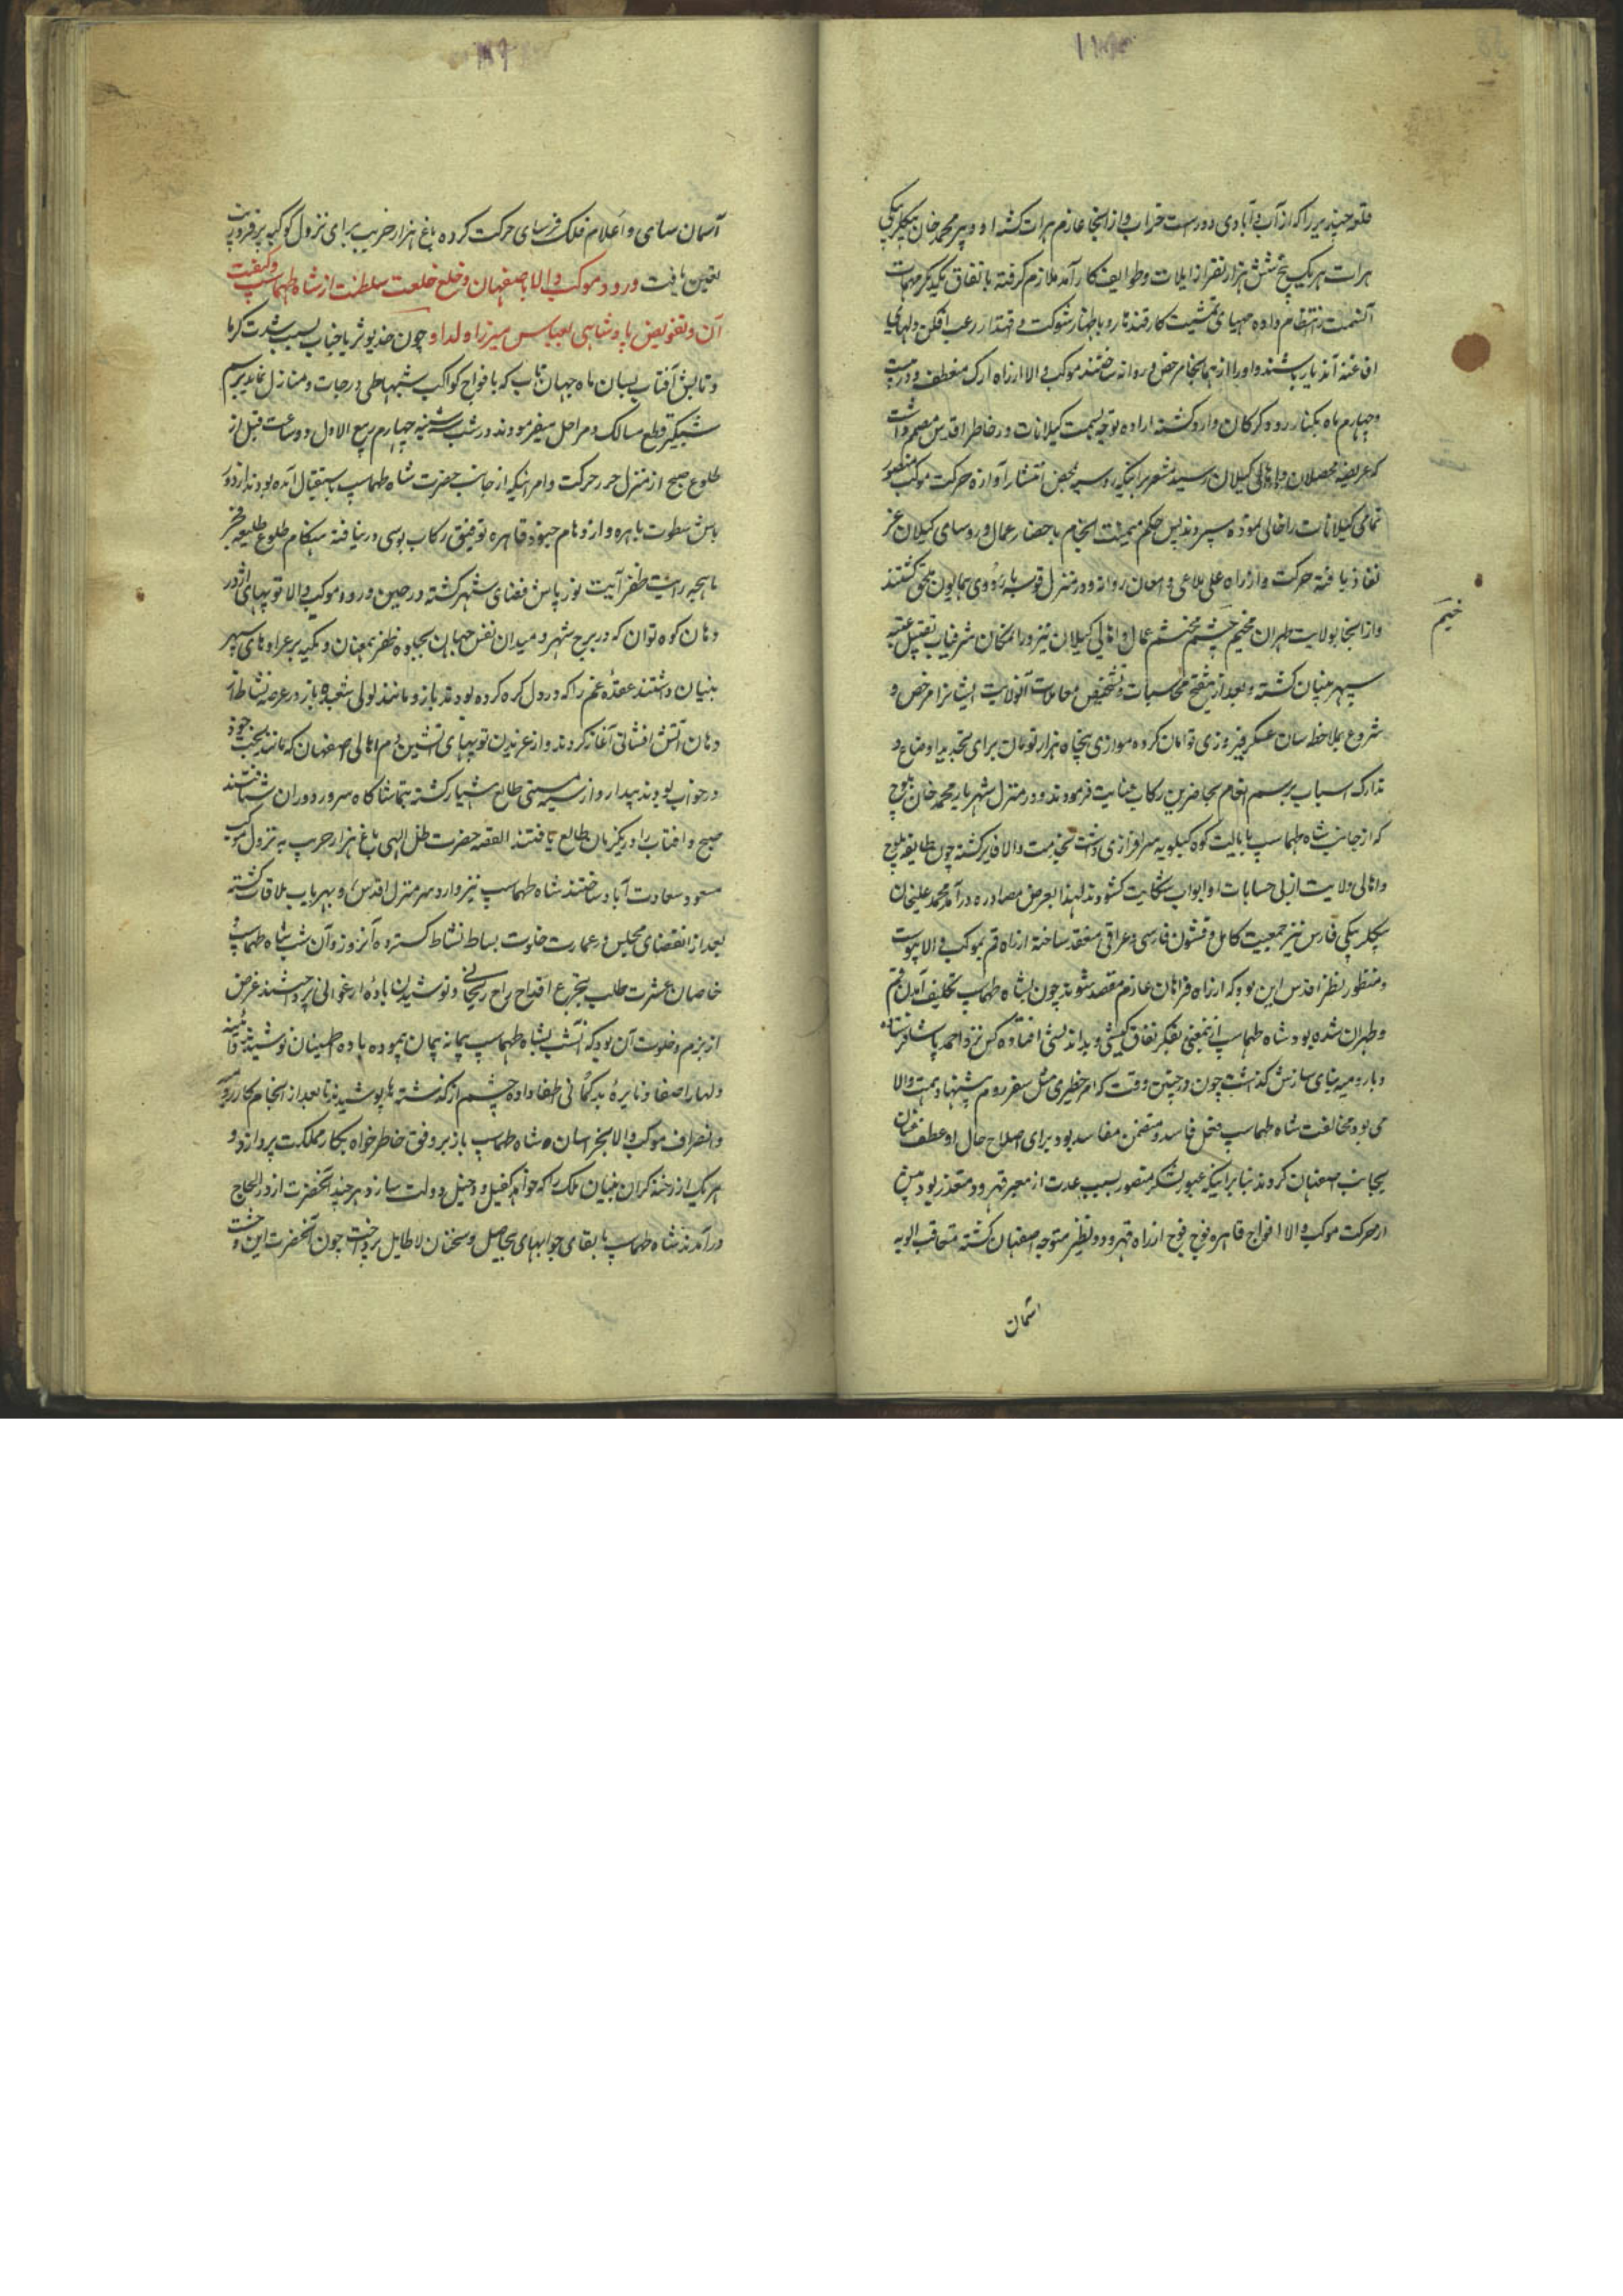 قلعه جنیدیرا که از آب و آبادی دور است خراب و از انجا عازم هرات کشته او و پیر محمد خان بیکلربیکی
هرات هر یک پنج شش هزار نفر از ایلات و طوایف کار آمد ملازم کرفته باتفاق یکدیکر مهمات
آنسمت انتظام داده مهیای تمشیت کار قندهار و باظهار شوکت و اقتدار رعب افکن دلهای
افاغنه آندیار باشند و او را از همانجا مرخص و روانه ساختند موکب والا از راه ارک منعطف و در بیست
و چهارم ماه بکنار رود کرکان وارد کشته اراده توجه بسمت کیلانات در خاطر اقدس مصمم داشت
که عریضه محصلان و اهالی کیلان رسید مشعر بر اینکه روسیه بمحض انتشار آوازه حرکت موکب منصور
تمامی کیلانات را خالی نموده سپردند پس حکم میمنت انجام باحضار عمال و روسای کیلان عز
نفاذ یافته حرکت و از راه علی بلاغی و دامغان روانه و در منزل قوسه باردوی همایون ملحق کشتند
و از انجا بولایت طهران مخیم حشم محتشم عمال و اهالی کیلان نیز در انمکان شرفیاب تقبیل عتبه
سپهر بنیان کشته و بعد از تنقیح محاسبات و تشخیص معاملات آنولایت ایشانرا مرخص و
شروع بملاحظه سان عسکر فیروزی توامان کرده موازی پنجاه هزار تومان برای تجدید اوضاع و
تدارک اسباب برسم انعام بحاضرین رکاب عنایت فرمودند و در منزل شهریار محمد خان بلوچ
که از جانب شاه طهماسب بایالت کوه کیلویه سرافرازی داشت بخدمت والا فایز کشته چون طایفه بلوچ
و اهالی ولایت از بی حسابات او ابواب شکایت کشودند لهذا بمعرض مصادره در آمد محمد علیخان
بیکلربیکی فارس نیز جمعیت کامل و قشون فارسی و عراقی منعقد ساخته از راه قم بموکب والا پیوست
و منظور نظر اقدس این بود که از راه فراهان عازم مقصد شوند چون بشاه طهماسب تکلیف آمدن قم
و طهران شده بود شاه طهماسب از نمعنی بفکر نفاق کیشی و بد اندیشی افتاده کس نزد احمد پاشا فرستاده
و با رومیه بنای سازش کذاشت چون در چنین وقت که امر خطیری مثل سفر روم پیشنهاد همت والا
می بود مخالفت شاه طهماسب مخل فاسد و متضمن مفاسد بود برای اصلاح حال او عطف عنان
بجانب اصفهان کردند بنا بر اینکه عبور لشکر منصور بسبب عدت از معبر قهرود متعذر بود پیش
از حرکت موکب والا افواج قاهره فوج فوج از راه قهرود و نطنز متوجه اصفهان کشته متعاقب الویه
خیم
آسمان
آسمان سای و اعلام فلک فرسای حرکت کرده باغ هزار جریب برای نزول کوکبه پر فروزیب
تعیین یافت ورود موکب والا باصفهان و خلع خلعت سلطنت از شاه طهماسب و کیفیت
آن و تفویض پادشاهی بعباس میرزا ولد او چون خدیو ثریا جناب بسبب شدت کرما
و تابش آفتاب بسان ماه جهان تاب که با فواج کواکب شبها طی درجات و منازل نماید برسم
شبکیر قطع مسالک و مراحل میفرمودند در شب سه شنبه چهارم ربیع الاول دو ساعت قبل از
طلوع صبح از منزل جز حرکت و امرائیکه از جانب حضرت شاه طهماسب باستقبال آمده بودند از دور
باش سطوت باهره و ازدهام جنود قاهره توفیق رکاب بوسی در نیافته هنکام طلوع طلیعه فجر
ماهچه رایت ظفر آیت نور پاش فضای شهر کشته در حین ورود موکب والا توپهای اژدر
دهان کوه توان که در برج شهر و میدان نقش جهان بجلوه ظفر همعنان و تکیه بر عراده های سپهر
بنیان داشتند عقده غم را که در دل کره کرده بودند باز و مانند لولی شعبده باز در عرصه نشاط از
دهان آتش افشانی آغاز کردند و از غریدن توپهای آتشین دم اهالی اصفهان که مانند بخت خود
در خواب بودند بیدار و از سیه مستی طالع هشیار کشته بتماشا کاه سرور دوران شتافتند
صبح و آفتاب را در یکزمان طالع یافتند القصه حضرت ظل الهی باغ هزار جریب به نزول موکب
مسعود سعادت آباد ساختند شاه طهماسب نیز وارد سر منزل اقدس و بهره یاب ملاقات کشته
بعد از انقضای مجلس در عمارت خلوت بساط نشاط کسترده آنروز و آن شب شاه طهماسب و
خاصان عشرت طلب بتجرع اقداح راح ریحانی و نوشیدن باده ارغوانی پرداختند غرض
از بزم و خلوت آن بود که آنشب بشاه طهماسب پیمانه پیمان پیموده باده اطمینان نوشیده و آینه
دلها را صفا و نایره بد کمانی اطفا داده چشم از کذشته ها پوشیدند تا بعد از انجام کار رومیه
و انصراف موکب والا بخراسان شاه طهماسب باز بر وفق خاطر خواه بکار مملکت پردازد و
هر یک از رخنه کران بنیان ملک را که خواهد کفیل و دخیل دولت سازد هر چند آنحضرت از در الحاح
در آمدند شاه طهماسب بالقای جوابهای بیحاصل و سخنان لا طایل پرداخت چون آنحضرت این وحشت